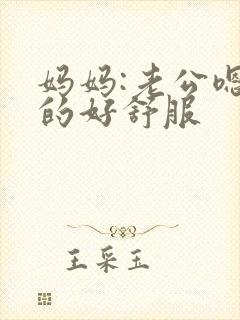 妈妈:老公嗯
的好舒服
王采玉